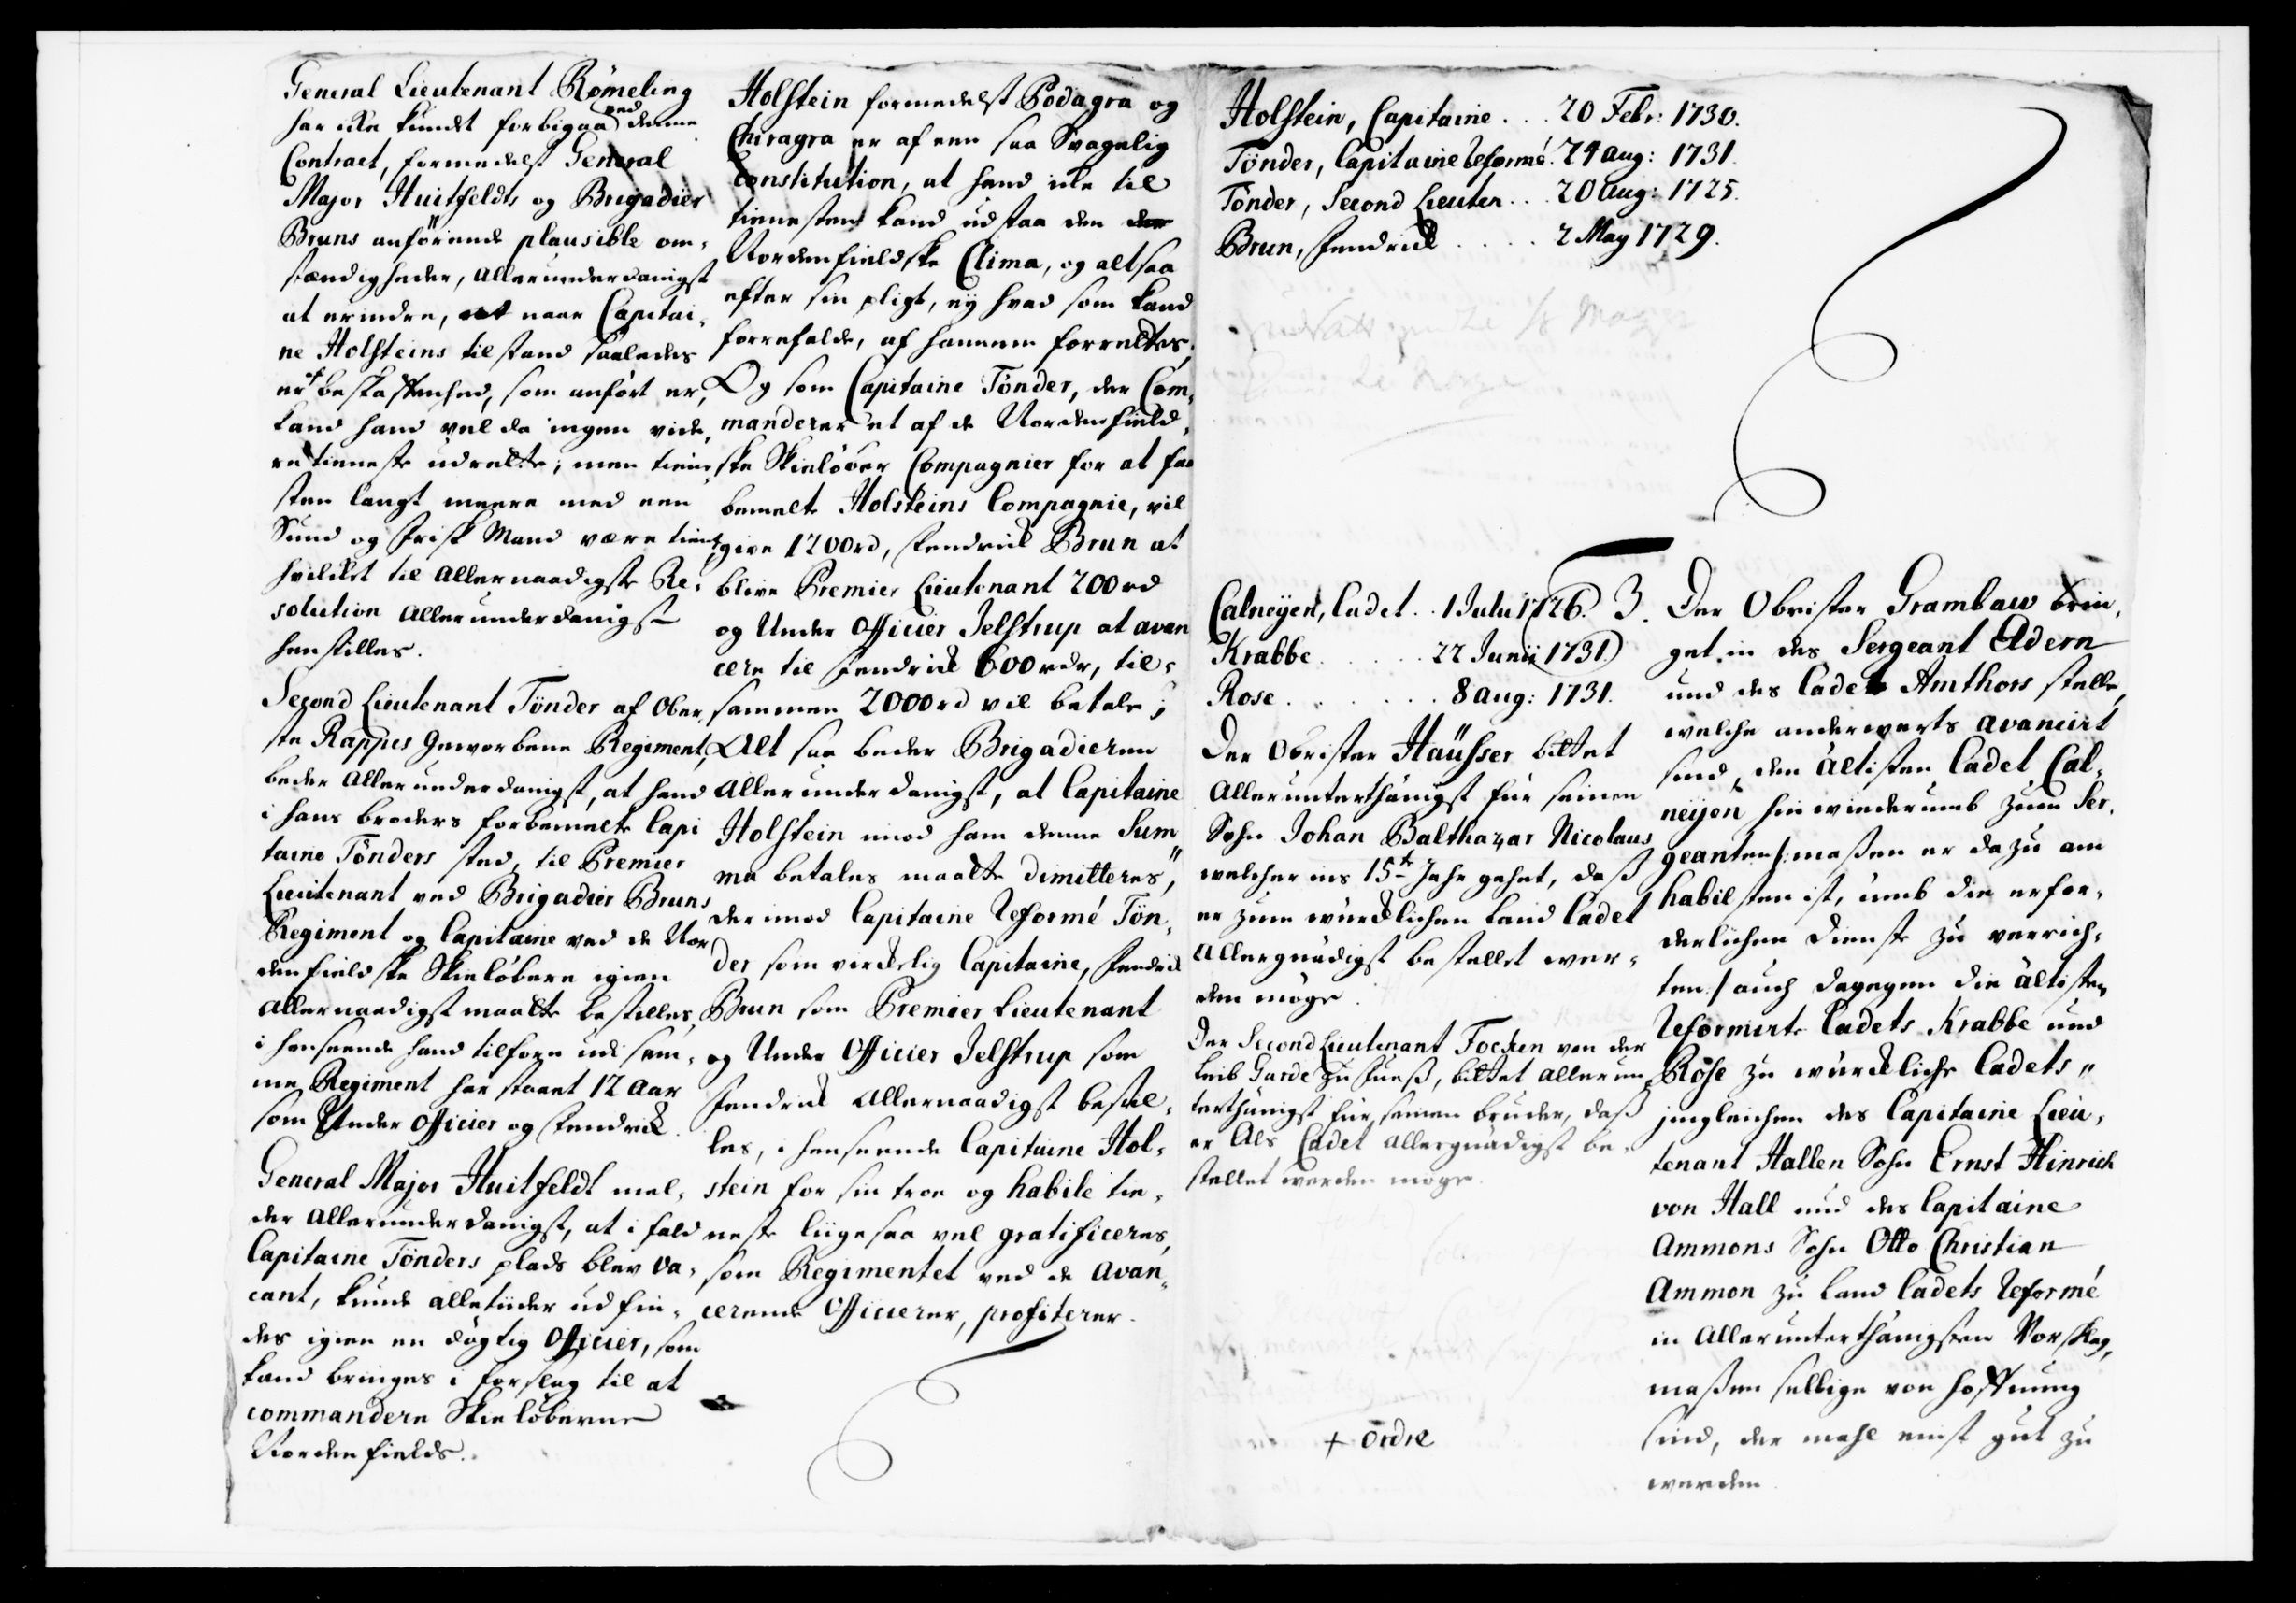 General Lieutenant Römeling
har icke kundet forbigaa ved denne
Contract, formedelst General
Major Huitfeldts og Brigadier
Bruns anförende plausible om-
stændigheder, allerunderdanigst
at erindre, at naar Capitai-
ne Holsteins tilstand saaledes
er beskaffenhed, som anfört er,
kand hand vel da ingen vide-
re tieneste udrette; men tiene-
sten langt meere med een
Sund og frisk Mand være tient,
hvilket til allernaadigste Re-
solution allerunderdanigst
henstilles.
Second Lieutenant Tönder af Ober-
ste Rappes Geworbene Regiment,
beder allerunderdanigst, at hand
i hans broders forbemelte Capi
taine Tönders sted, til Premier
Lieutenant ved Brigadier Bruns
Regiment og Capitaine ved de Nor
denfieldske Skielöbere igien
allernaadigst maatte bestilles,
i henseende hand tilforn udi sam-
me Regiment har staaet 12 aar
som Under Officier og Fendrick.
General Major Huitfeldt mel-
der allerunderdanigst, at i fald
Capitaine Tönders plads blev va-
cant, kunde alletiider udfin-
des igien en dögtig Officier, som
kand bringes i forslag til at
commandere Skielöberne
Nordenfields.
Holstein formedelst Podagra og
Chiragra er af een saa Svagelig
Constitution, at hand icke til
tienesten kand udstaa den
Nordenfieldske Clima, og altsaa
efter sin pligt, eÿ hvad som kand
forrefalde, af hannem forrettes.
Og som Capitaine Tönder, der Com-
manderer et af de Nordenfield-
ske Skielöber Compagnier for at faa
bemelte Holsteins Compagnie, vil
give 1200 rd, Fendrick Brun at
blive Premier Lieutenant 200 rd
og Under Officier Jelstrup at avan
cere til Fendrick 600 rdr, til-
sammen 2000 rd vil betale;
Alt saa beder Brigadieren
allerunderdanigst, at Capitaine
Holstein imod ham denne Sum-
ma betales maatte dimitteres,
der imod Capitaine Reformé Tön-
der som virckelig Capitaine, Fendrick
Brun som Premier Lieutenant
og Under Officier Jelstrup som
Fendrick allernaadigst bestil-
les, i henseende Capitaine Hol-
stein for sin troe og habile tie-
neste liigesaa vel gratificeres,
som Regimentet ved de avan-
cerende Officierer, profiterer.
Holstein, Capitaine . . . 20 Febr: 1730.
Tönder, Capitaine Reformé. 24 aug: 1731.
Tönder, Second Lieuten . . . 20 aug: 1725.
Brun, Fendrick . . . . 2 May 1729.
Calneÿen, Cadet . . 1 Julii 1726.
Krabbe . . . . . 22 Junii 1731.
Rose . . . . . . 8 aug: 1731.
Der Obrister Häusser bittet
allerunterthänigst für seinen
Sohn Johan Balthazar Nicolaus
welcher ins 15te Jahr gehet, daß
er zum würcklichen Land Cadet
allergnädigst bestellet wer-
den möge.
Der Second Lieutenant Focken von der
Leib Garde zu Fueß, bittet allerun-
terthänigst für seinen bruder, daß
er als Cadet allergnädigst be-
stellet werden möge.
+ ordre
3. Der Obrister Grambaw brin-
get in des Sergeant Edern
und des Cadet Amthors stelle,
welche anderwerts avancirt
sind, den ältisten Cadet Cal-
neÿen hinwiederumb zum Ser-
geanten /: maßen er dazu am
habilsten ist, umb die erfor-
derlichen Dienste zu verrich-
ten :/ auch dagegen die ältisten
Reformirte Cadets Krabbe und
Rose zu würckliche Cadets,,
jngleichen des Capitaine Lieu-
tenant Hallen Sohn Ernst Hinrich
von Hall und des Capitaine
Ammons Sohn Otto Christian
Ammon zu Land Cadets Reformé
in allerunterthänigsten Vorschlag,
maßen selbige von hoffnung
sind, der mahl einst gut zu
werden.